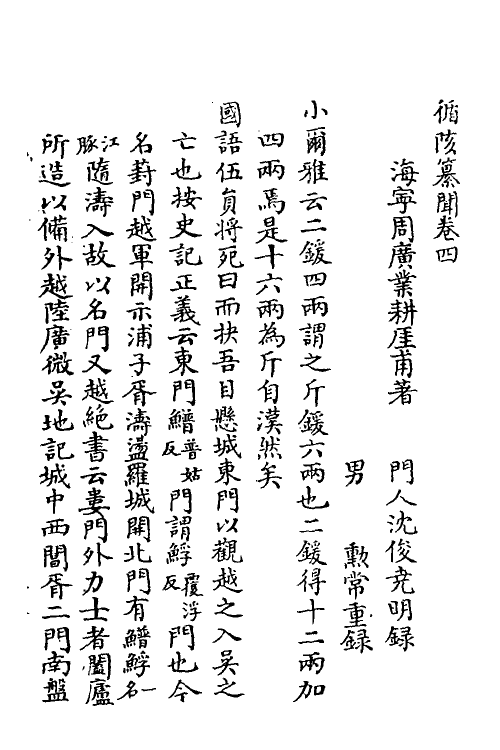 循陔纂聞卷四
海寧周廣業耕厓甫著 門人沈俊尭明録
男 勲常重録
小爾雅云二鍰四兩謂之斤鍰六兩也二鍰得十二兩加
四兩焉是十六兩為斤自漢然矣
國語伍員將死曰而抉吾目懸城東門以觀越之入吳之
亡也按史記正義云東門鱛普姑反門謂鯙覆浮反門也今
名葑門越軍開示浦子胥濤盪羅城開北門有鱛鯙一名
江豚隨濤入故以名門又越絶書云婁門外力士者闔廬
所造以備外越陸廣微吳地記城中西閶胥二門南盤